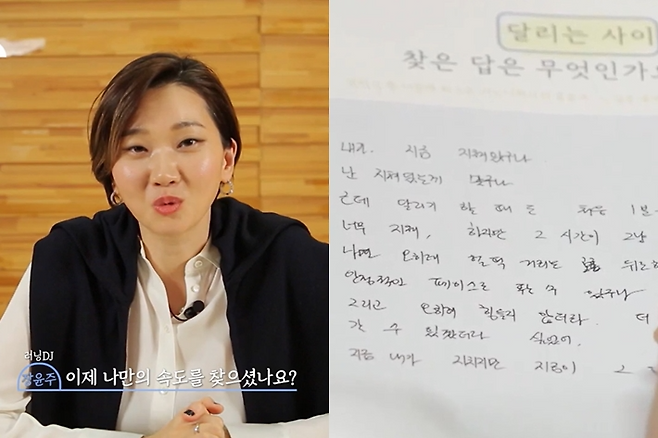 러닝DJ
장윤주 이제 나만의 속도를 찾으셨나요?
달리는 사이
찾은 답은 무엇인가요
내가 지금 지쳐있구나
난 지쳐있는게 맞구나
근데 달리기 할 때도 처음 1분
너무 지쳐, 하지만 그 시간이 그냥
나면 오히려 헐떡 거리는 뛰는
안정적인 페이스로 뛸 수 있구나
그리고 오히려 힘들지 않더라. 더
갈 수 있겠더라 싶었어.
지금 내가 지치지만 지금이 그